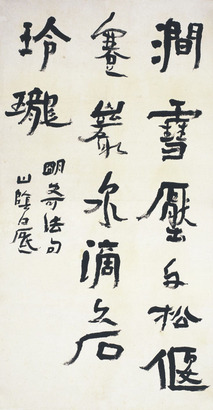 澗雪壓多松偃
蹇巖泉滴久石
玲瓏
明奇法句
山陰